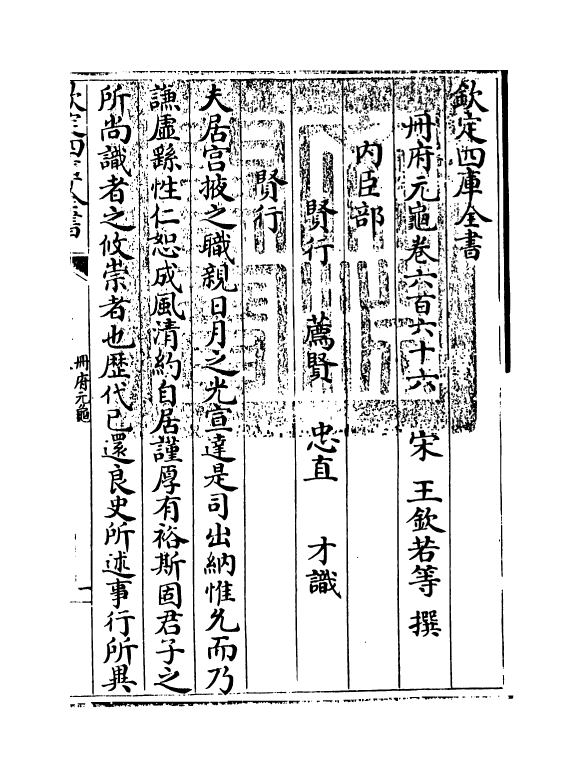 欽定四庫全書
冊府元龜卷六百六十六　宋　王欽若等　撰
內臣部
賢行　薦賢　忠直　才識
賢行
夫居宫掖之職親日月之光宣達是司出納惟允而乃
謙虛繇性仁恕成風清約自居謹厚有裕斯固君子之
所尚識者之攸崇者也歴代已還良史所述事行所異
欽定四庫全書
冊府元龜
一